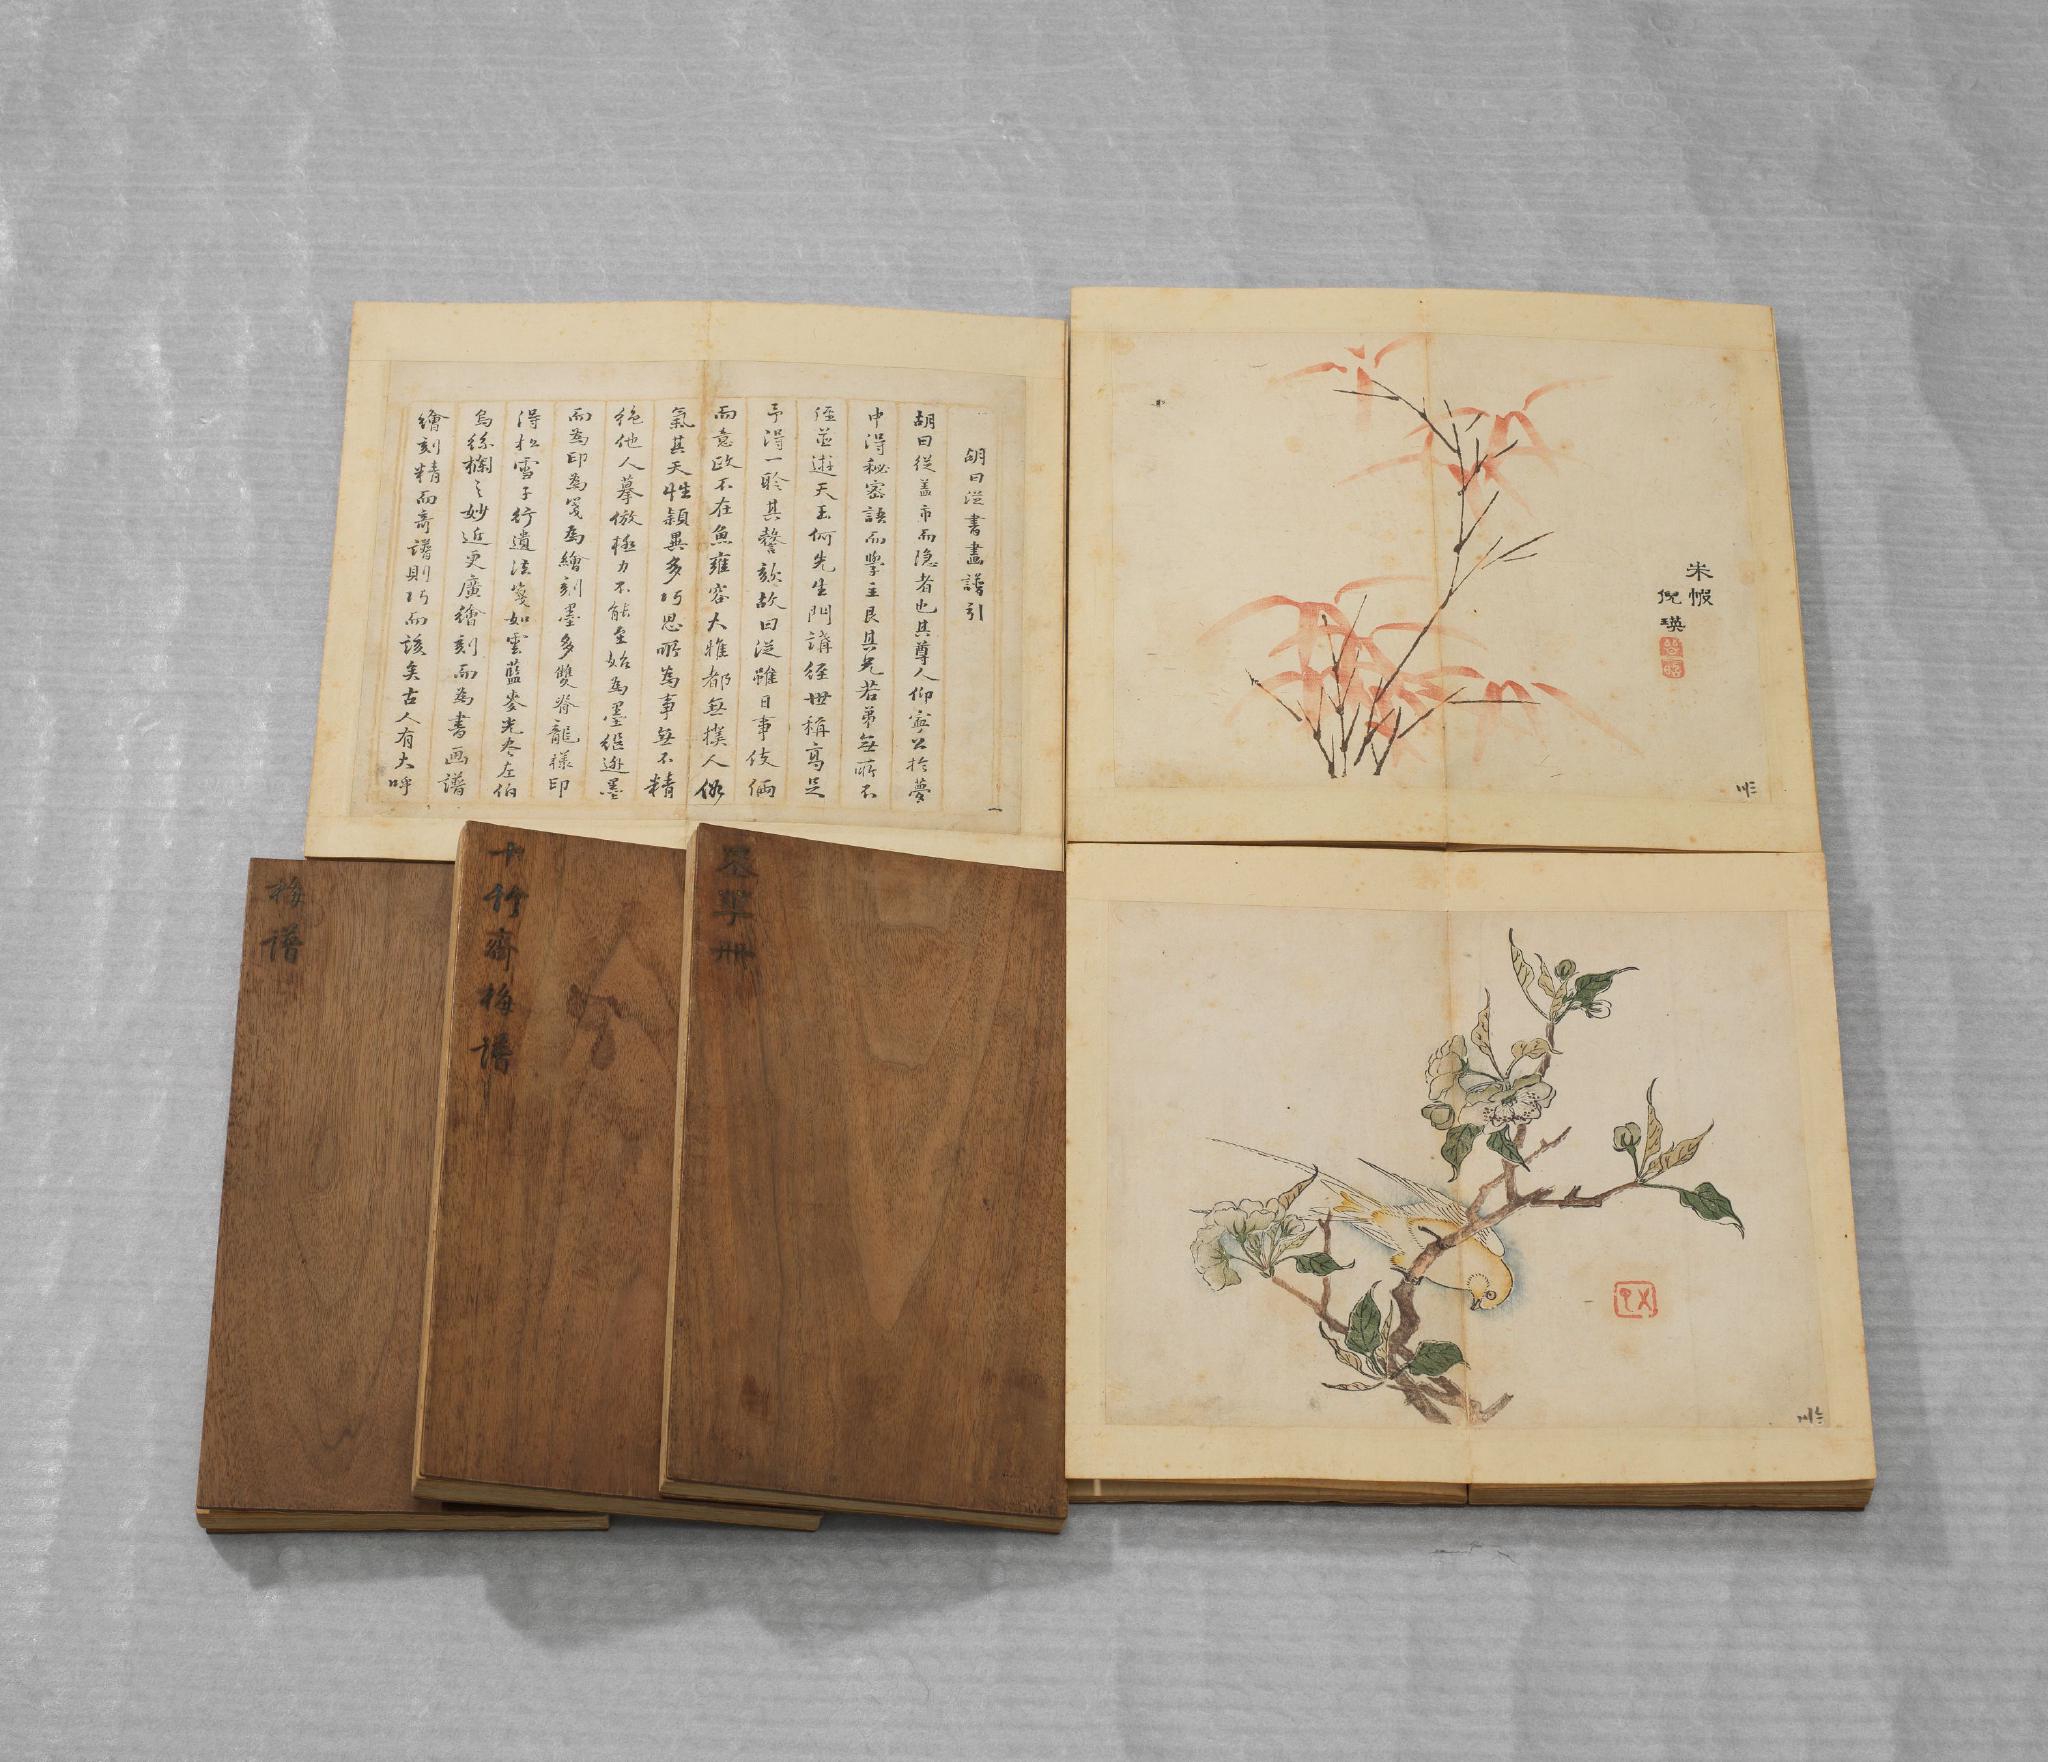 胡曰從書畫譜引
胡曰從葢市而隐者也其尊人仰寧公於夢
中得秘密語而學主艮其兄若弟無所不
經並遊天玉何先生門講經世稱高足
予得一聆其謦欬故曰從雖日事伎倆
而意政不在魚雍容大雅都無撲人俗
氣其天性穎異多巧思所為事無不精
絕他人摹倣極力不能至始為墨繼遜墨
而為印為箋為繪刻墨多雙脊龍樣印
得松雪子行遺法箋如雲藍麥光冬左伯
烏絲欄之妙近更廣繪刻而為書画譜
繪刻精而奇譜則巧而該矣古人有大呼
一
朱幑
倪瑛
梅譜
十竹齋梅譜
墨華冊